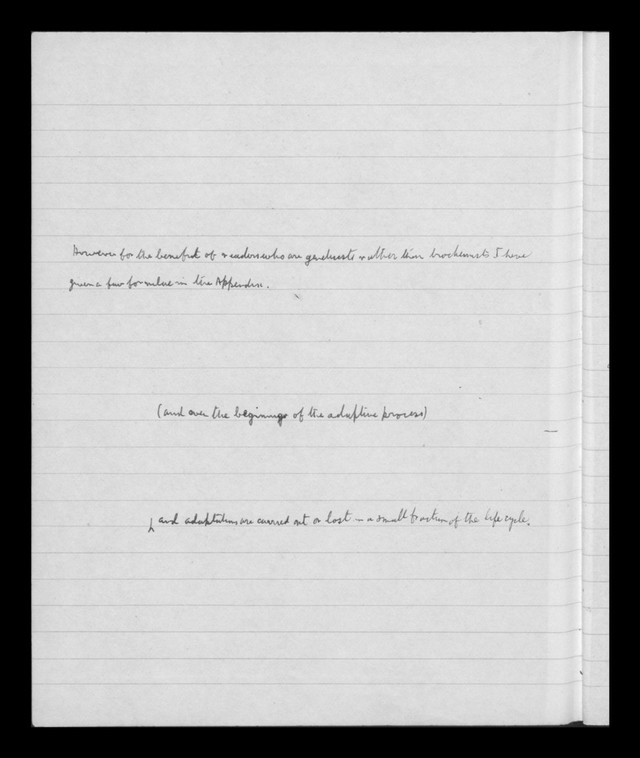 However for the benefit of readers who are geneticists rather than biochemists I have
given a few formulae in the Appendix.
(and even the beginnings of the adaptive process)
and adaptations are carried out or lost in a small fraction of the life cycle.